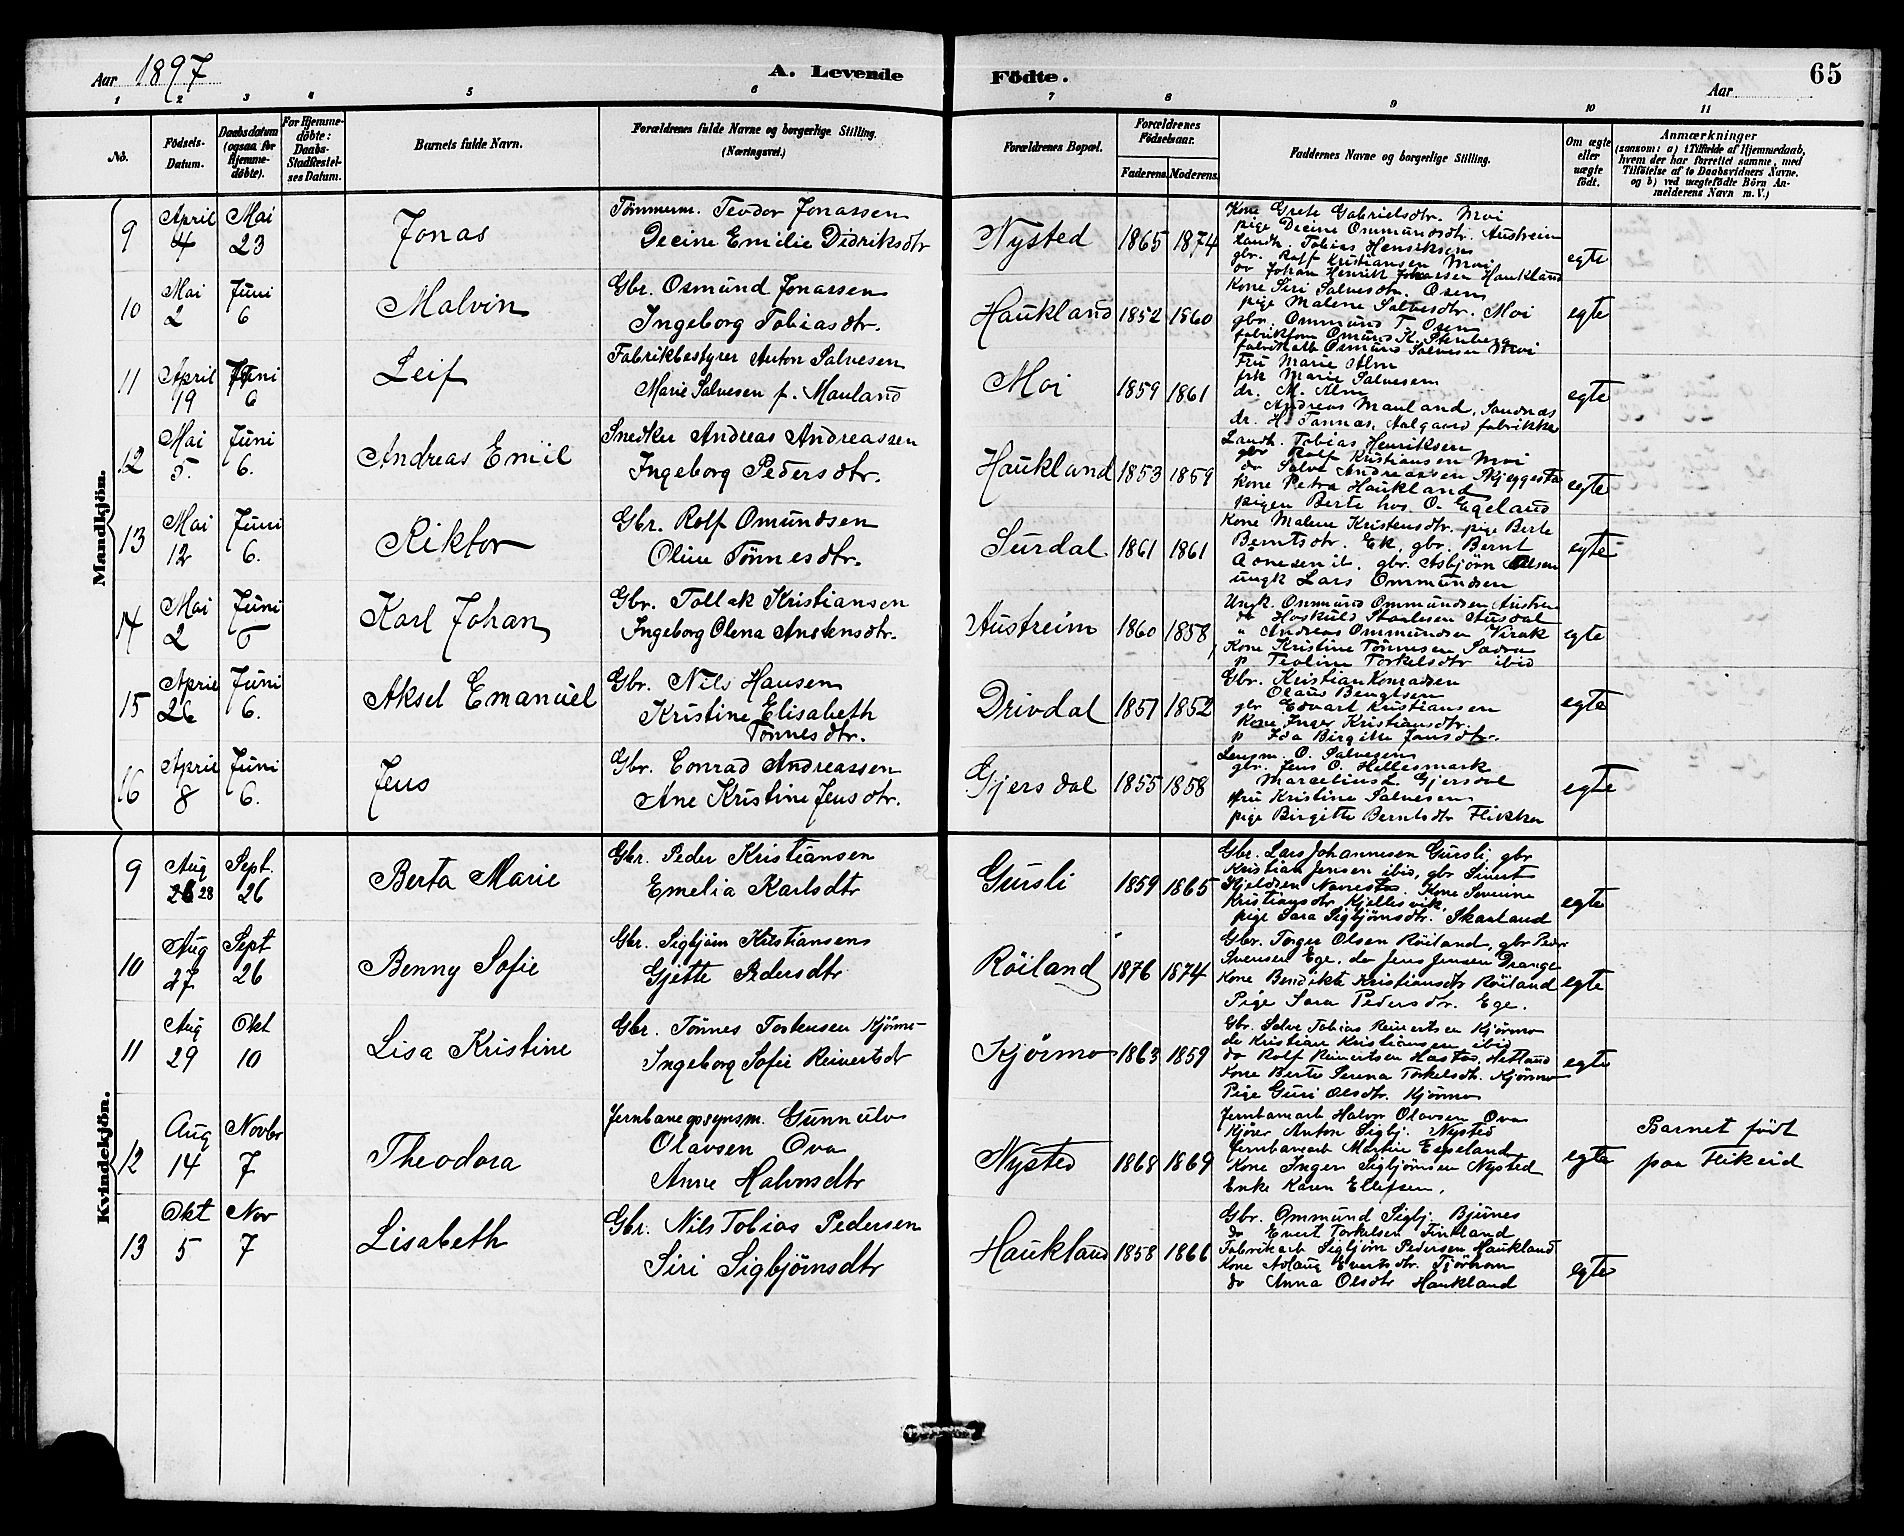 Aar 1897
A. Levende
Födte.
Aar
65
1 2 3 4 5 6 7 8 9 10 11
No.
Födsels-Datum.
Daabsdatum (ogsaa for Hjemme-döbte).
For Hjemme-döbte: Daabs-Stadfæstel-ses Datum.
Barnets fulde Navn.
Forældrenes fulde Navne og borgerlige Stilling. (Næringsvei.)
Forældrenes Bopæl.
Forældrenes Födselsaar.
Faderens. Moderens.
Faddernes Navne og borgerlige Stilling.
Om ægte eller uægte födt.
Anmærkninger
(saasom: a) i Tilfælde af Hjemmedaab,
hvem der har forrettet samme, med
Tilföielse af to Daabsvidners Navne.
og b) ved uægtefödte Börn An-
melderens Navn m. V.)
Mandkjön.
9 April 4 Mai 23 Jonas
Tömmerm. Teodor Jonassen
Decine Emilie Didriksdtr
Nysted 1865 1874
Kone Grete Gabrielsdtr. Moi
pige Decine Ommundsdtr. Austreim
Landh. Tobias Henriksen
gbr. Rolf Kristiansen Moi
do Johan Henrik Johnsen Haukland
egte
10 Mai 2 Juni 6 Malvin
Gbr. Osmund Jonassen
Ingeborg Tobiasdtr.
Haukland 1852 1860
Kone Siri Salvesdtr. Osen
pige Malene Salvesdtr. Moi
gbr. Ommund T. Osen
fabrikform Omund K. Stenberg
fabrikarb Osmund Salvesen Moi
egte
11 April 19 Juni 6 Leif
Fabrikbestyrer Anton Salvesen
Marie Salvesen f. Mauland
Moi 1859 1861
Fru Marie Alm
frk Marie Salvesen
dr. M. Alm
Andreas Mauland, Sandnæs
dr. H. Fannæs, Aalgaard fabrikker
egte
12 Mai 5. Juni 6. Andreas Emil
Snedker Andreas Andreassen
Ingeborg Pedersdtr.
Haukland 1853 1859
Landh. Tobias Henriksen
gbr Rolf Kristiansen Moi
do Salve Andreassen Skjeggesta
Kone Petra Haukland
pigen Berte hos O. Egeland
egte
13 Mai 12 Juni 6. Riktor
Gbr. Rolf Omundsen
Oline Tönnesdtr.
Surdal 1861 1861
Kone Malene Kristensdtr. pige Berte
Berntsdtr. Ek, gbr. Bernt
Aanesen ib. gbr. Asbjörn Olsen
ungk Lars Ommundsen
egte
14 Mai 2 Juni 6 Karl Johan
Gbr. Tollak Kristiansen
Ingeborg Olena Anstensdtr.
Austreim 1860 1858
Ungk. Ommund Ommundsen Austre
do Hoskuls Staalesen Stusdal
" Andreas Ommundsen Virak
Kone Kristine Tönnesen
p Teoline Torkelsdtr ibid
egte
15 April 26 Juni 6. Aksel Emanuel
Gbr. Nils Hansen
Kristine Elisabeth
Tönnesdtr.
Drivdal 1851 1852
Gbr. Kristian Konradsen
Olaus Bengtsen
gbr Edvart Kristiansen
Kone Inger Kristiansdtr.
p Ida Birgitte Jansdtr.
egte
16 April 8 Juni 6. Jens
Gbr. Conrad Andreassen
Ane Kristine Jensdtr.
Gjersdal 1855 1858
Lensm. O. Salvesen
gbr. Jens O. Hellesmark
Marcelius L. Gjersdal
fru Kristine Salvesen
pige Birgitte Berntsdtr Flikka
egte
Kvindekjön.
9 Aug 28 Sept. 26 Berta Marie
Gbr. Peder Kristiansen
Emelia Karlsdtr
Gursli 1859 1865
Gbr. Lars Johannesen Gursli, gbr
Kristian Jensen ibid, gbr Sivert
Kjeldsen Navrestad. Kone Severine
Kristiansdtr Kjellesvik
pige Sara Sigbjörnsdtr. Skarland
egte
10 Aug 27 Sept 26 Benny Sofie
Gbr. Sigbjörn Kristiansen
Gjette Pedersdtr
Röiland 1876 1874
Gbr. Torger Olsen Röiland, gbr Peder
Svensen Ege, do Jens Jensen Drange
Kone Bendikte Kristiansdtr Röiland
Pige Sara Pedersdtr. Ege.
egte
11 Aug 29 Okt 10 Lisa Kristine
Gbr. Tönnes Tostensen Kjörmo
Ingeborg Sofie Reinertsdt
Kjörmo 1863 1859
Gbr. Salve Tobias Reinertsen Kjörmo
do Kristian Kristiansen ibid
do Rolf Reinertsen Hastad, Hetland
Kone Berte Serena Torkelsdtr. Kjörmo
Pige Guri Olsdtr. Kjörmo
egte
12 Aug 14 Novbr 7 Theodora
Jernbaneopsynsm. Gunnulv
Olavsen Ova
Anne Halvorsdtr
Nysted 1868 1869
Jernbanearb Halvor Olavsen Ova
Kjörer Anton Sigbj. Nysted
Jernbanearb Martin Eegeland
Kone Inger Sigbjörnsen Nysted
Enke Karen Ellefsen.
egte
Barnet född
paa Flikeid
13 Okt 5 Nov 7 Lisabeth
Gbr. Nils Tobias Pedersen
Siri Sigbjörnsdtr
Haukland 1858 1866
Gbr. Ommund Sigbj. Bjunes
do Evert Torkelsen Finkland
Fabrikarb Sigbjörn Pedersen Haukland
Kone Aslaug Evertsdtr. Tjörhom
do Anna Olsdtr Haukland
egte